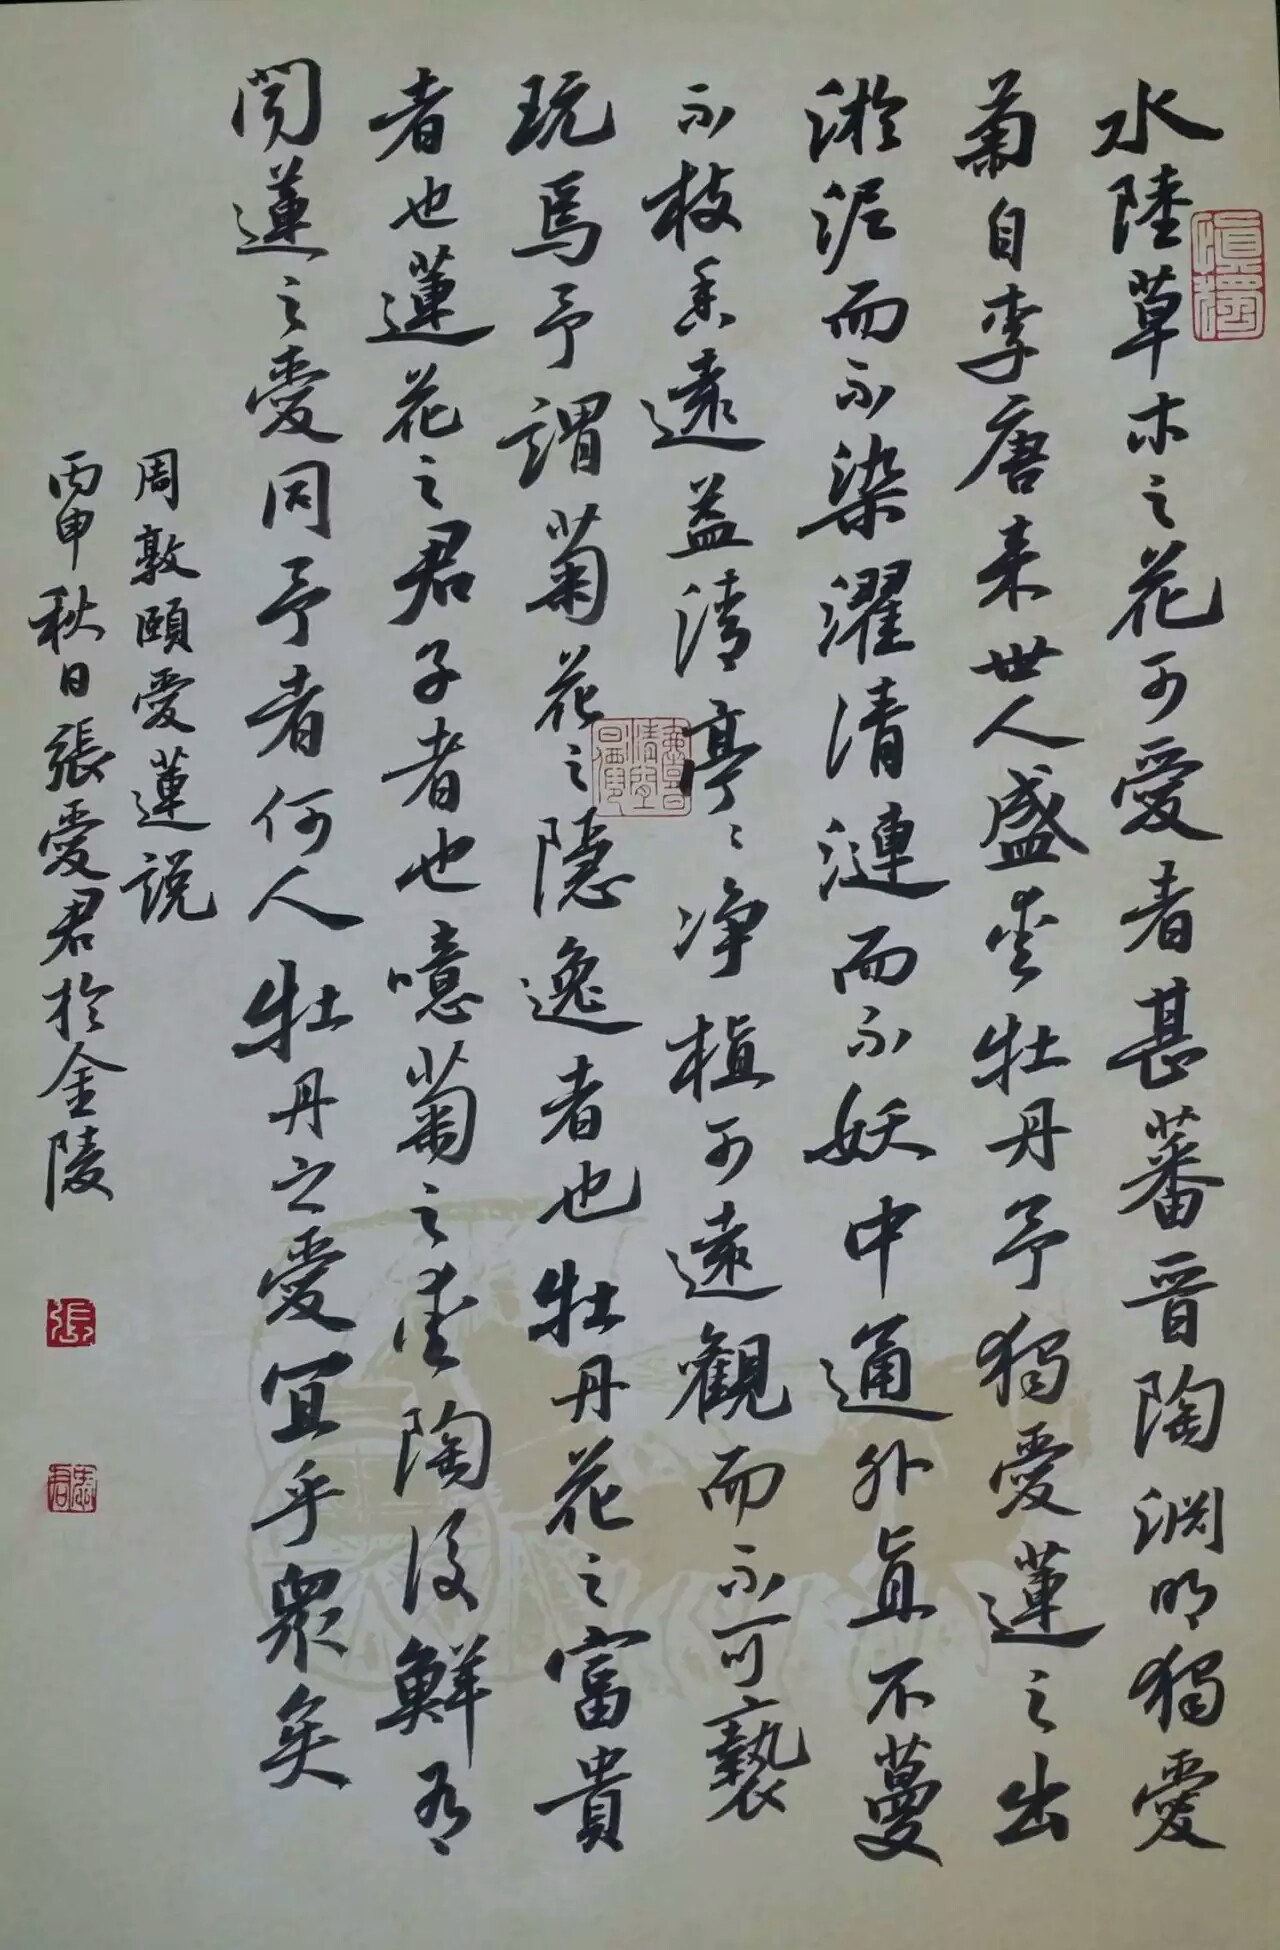 水陸草木之花可愛者甚蕃晋陶渊明獨愛
菊自李唐来世人盛愛牡丹予獨愛蓮之出
淤泥而不染濯清漣而不妖中通外直不蔓
不枝香遠益清亭〻净植可遠觀而不可褻
玩焉予謂菊花之隱逸者也牡丹花之富貴
者也蓮花之君子者也噫菊之愛陶後鮮有
聞蓮之愛同予者何人牡丹之愛宜乎眾矣
周敦頤愛蓮說
丙申秋日張愛君於金陵
張